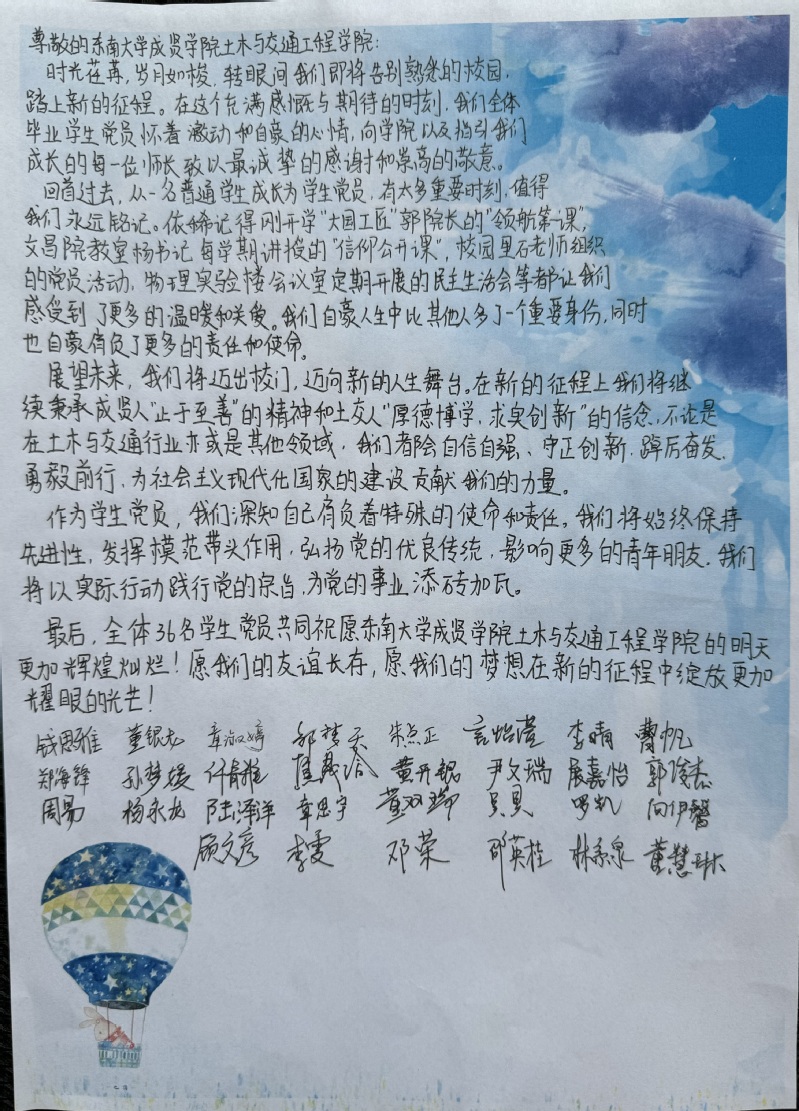 尊敬的东南大学成贤学院土木与交通工程学院:
时光荏苒,岁月如梭,转眼间我们即将告别熟悉的校园,
踏上新的征程。在这个充满感慨与期待的时刻,我们全体
毕业学生党员怀着激动和自豪的心情,向学院以及指引我们
成长的每一位师长致以最诚挚的感谢和崇高的敬意。
回首过去,从一名普通学生成长为学生党员,有太多重要时刻,值得
我们永远铭记。依稀记得刚开学“大国工匠”郭院长的“领航第一课”,
文昌院教室杨书记每学期讲授的“信仰公开课”,校园里石老师组织
的党员活动,物理实验楼会议室定期开展的民主生活会等都让我们
感受到了更多的温暖和关爱。我们自豪人生中比其他人多了一个重要身份,同时
也自豪肩负了更多的责任和使命。
展望未来,我们将迈出校门,迈向新的人生舞台。在新的征程上我们将继
续秉承成贤人“止于至善”的精神和土交人“厚德博学,求实创新”的信念,不论是
在土木与交通行业亦或是其他领域,我们都会自信自强、守正创新,踔厉奋发、
勇毅前行,为社会主义现代化国家的建设贡献我们的力量。
作为学生党员,我们深知自己肩负着特殊的使命和责任。我们将始终保持
先进性,发挥模范带头作用,弘扬党的优良传统,影响更多的青年朋友。我们
将以实际行动践行党的宗旨,为党的事业添砖加瓦。
最后,全体36名学生党员共同祝愿东南大学成贤学院土木与交通工程学院的明天
更加辉煌灿烂!愿我们的友谊长存,愿我们的梦想在新的征程中绽放更加
耀眼的光芒!
钱思雅 董银龙 章淑婷 郭梦天 朱点正 李晴 曹帆
郑海锋 孙梦媛 黄开锟 尹文瑞 展嘉怡 郭俊杰
周易 杨永龙 陆泽洋 章忠宇 黄双瑞 向伊馨
顾文彦 李雯 邓荣 邵英桂 董慧琳